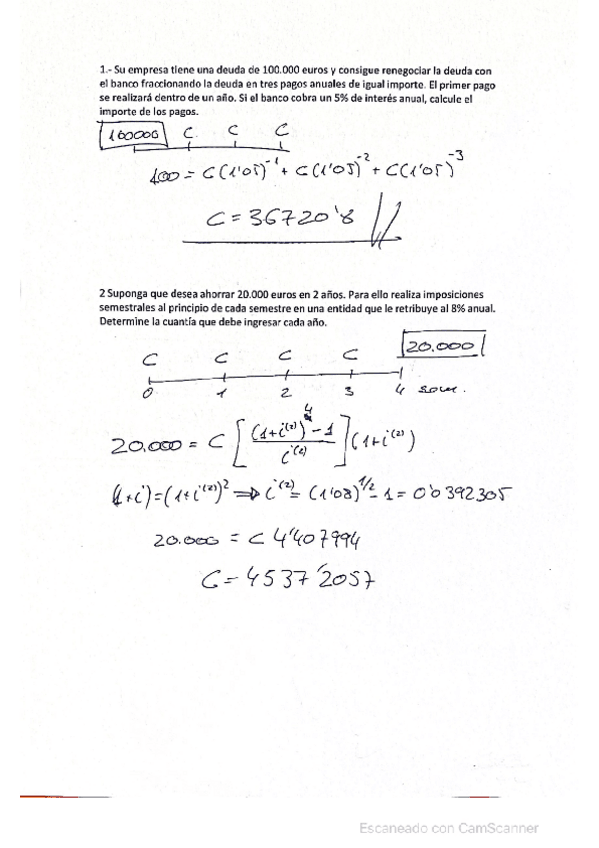 1.- Su empresa tiene una deuda de 100.000 euros y consigue renegociar la deuda con
el banco fraccionando la deuda en tres pagos anuales de igual importe. El primer pago
se realizará dentro de un año. Si el banco cobra un 5% de interés anual, calcule el
importe de los pagos.
100000 C C C
100 = C(1'05)⁻¹ + C(1'05)⁻² + C(1'05)⁻³
C = 36720'8
2 Suponga que desea ahorrar 20.000 euros en 2 años. Para ello realiza imposiciones
semestrales al principio de cada semestre en una entidad que le retribuye al 8% anual.
Determine la cuantía que debe ingresar cada año.
C C C C 20.000
0 1 2 3 4 sem.
20.000 = C [((1+i⁽²⁾)⁴ - 1)/i⁽²⁾] (1+i⁽²⁾)
(1+i) = (1+i⁽²⁾)² ⇒ i⁽²⁾ = (1'08)^1/2 - 1 = 0'0392305
20.000 = C 4'407994
C = 4537'2057
Escaneado con CamScanner